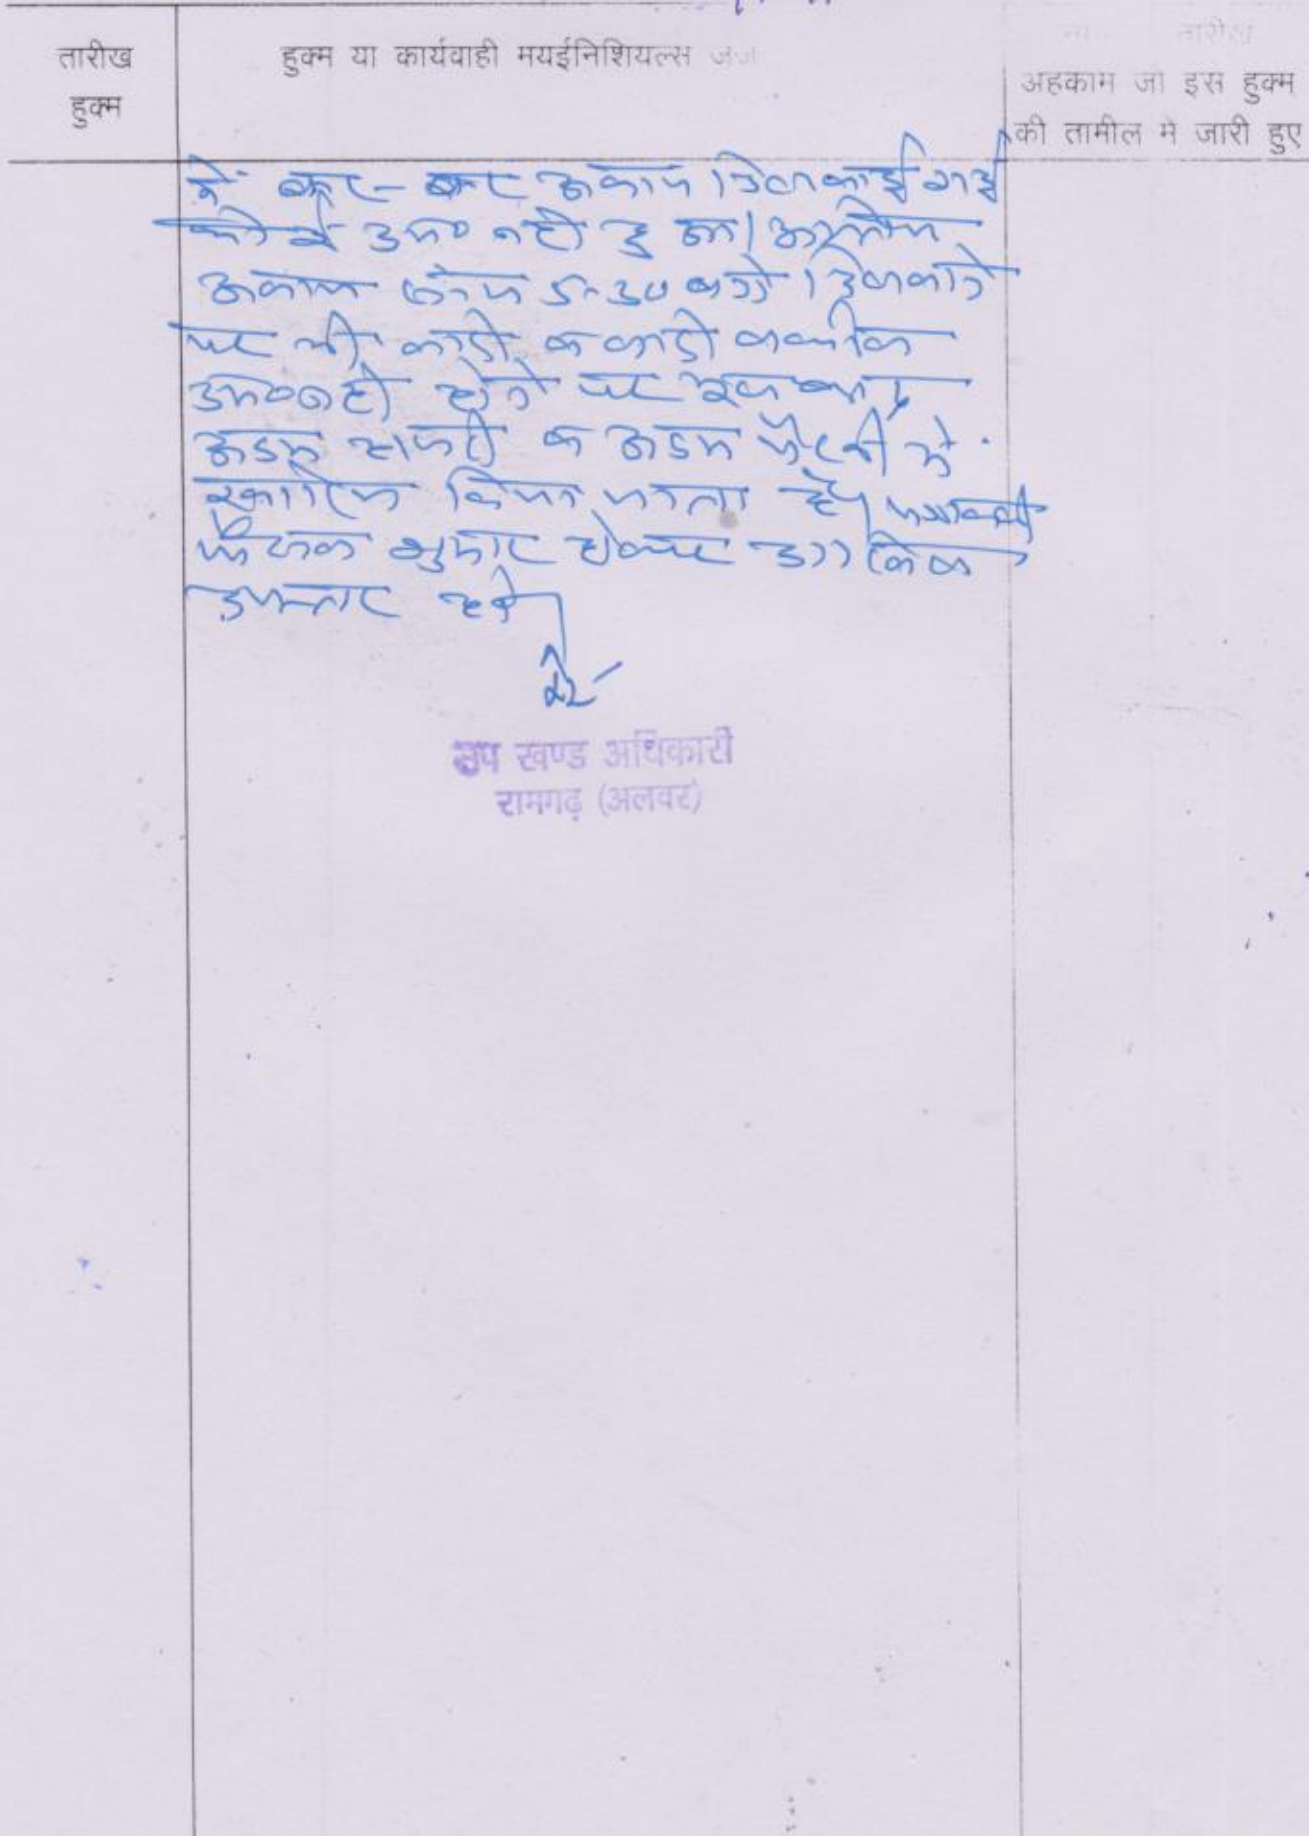 तारीख
हुक्म
हुक्म या कार्यवाही मयईनिशियल्स जज
तारीख
अहकाम जो इस हुक्म
की तामील मे जारी हुए
में बार-बार आवाज दिलवाई गई
कोई उप० नही हुआ। अन्तिम
आवाज 5-30 बजे दिलवाने
पर भी वादी व वादी वकील
उप० नही होने पर इस वाद
अदम हाजरी व अदम पैरवी मे
खारिज किया जाता है। पत्रावली
फैसल शुमार होकर दाखिल
दफ्तर हो।
उप खण्ड अधिकारी
रामगढ़ (अलवर)